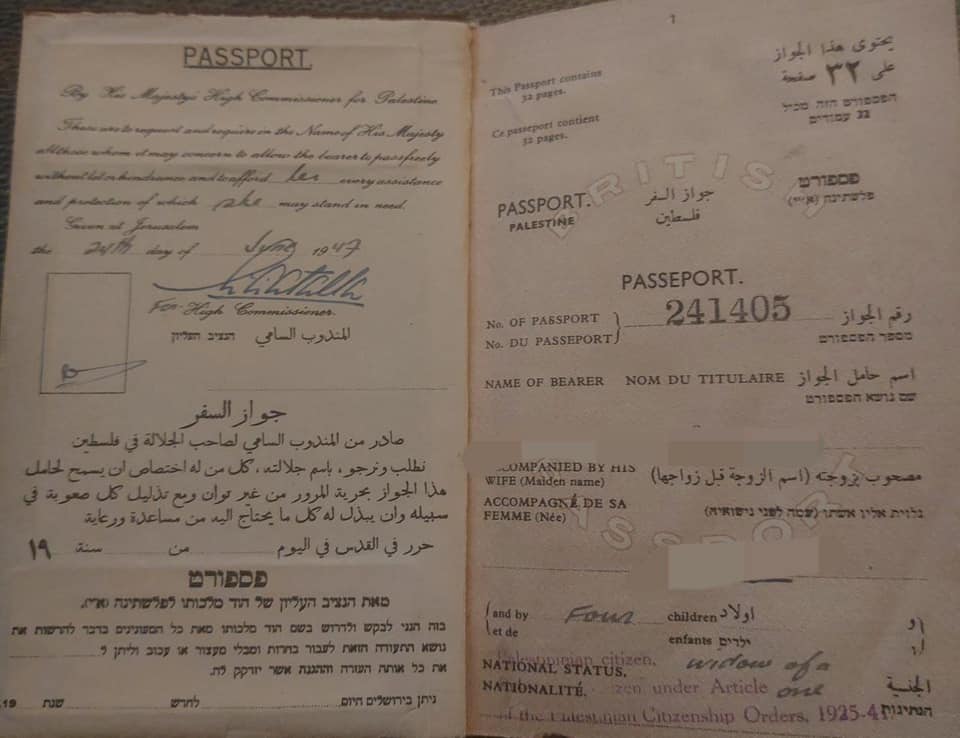 PASSPORT.
By His Majesty's High Commissioner for Palestine
These are to request and require in the Name of His Majesty
all those whom it may concern to allow the bearer to pass freely
without let or hindrance and to afford her every assistance
and protection of which she may stand in need.
Given at Jerusalem
the 24th day of June 1947
For High Commissioner.
المندوب السامي הנציב העליון
جواز السفر
صادر من المندوب السامي لصاحب الجلالة في فلسطين
نطلب ونرجو، باسم جلالته، كل من له اختصاص ان يسمح لحامل
هذا الجواز بحرية المرور من غير توان ومع تذليل كل صعوبة في
سبيله وان يبذل له كل ما يحتاج اليه من مساعدة ورعاية
حرر في القدس في اليوم من سنة ١٩
פספורט
מאת הנציב העליון של הוד מלכותו לפלשתינה (א״י).
בזה הנני לבקש ולדרוש בשם הוד מלכותו מאת כל המעונינים בדבר להרשות את
נושא התעודה הזאת לעבור בחרות ומבלי מעצור או עכוב וליתן ל
את כל אותה העזרה וההגנה אשר יזדקק לה.
ניתן בירושלים היום לחדש שנת 19
1
This Passport contains
32 pages.
Ce passeport contient
32 pages.
يحتوي هذا الجواز
على ٣٢ صفحة
הפספורט הזה מכיל
32 עמודים
BRITISH
PASSPORT.
PALESTINE
جواز السفر
فلسطين
פספורט
פלשתינה (א״י)
PASSEPORT.
No. OF PASSPORT
No. DU PASSEPORT
241405
رقم الجواز
מספר הפספורט
NAME OF BEARER NOM DU TITULAIRE اسم حامل الجواز
שם נושא הפספורט
COMPANIED BY HIS
WIFE (Maiden name)
مصحوب بزوجته (اسم الزوجة قبل زواجها)
ACCOMPAGNÉ DE SA
FEMME (Née)
נלוית אליו אשתו (שמה לפני נישואיה)
PASSPORT
and by Four children اولاد و
et de enfants ילדים
Palestinian citizen, widow of a
NATIONAL STATUS.
NATIONALITÉ.
zen under Article one
الجنسية
הנתינות
of the Palestinian Citizenship Orders, 1925-41